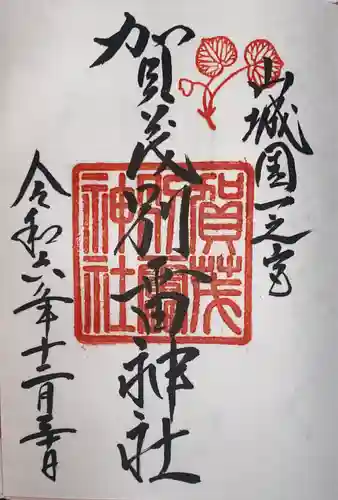 山城国一之宮
賀茂別雷神社
賀茂
別雷
神社
令和六年十二月三十日